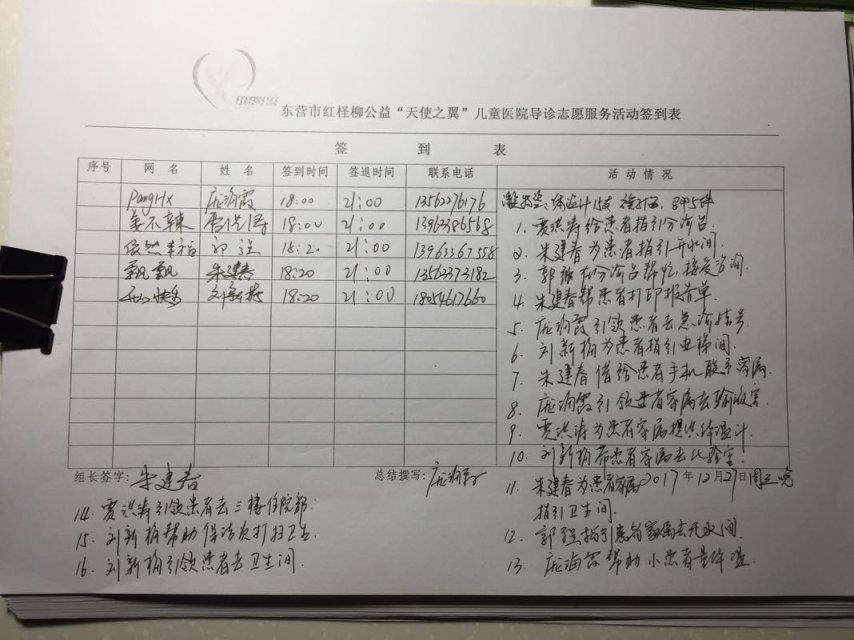 东营市红柽柳公益“天使之翼”儿童医院导诊志愿服务活动签到表
签 到 表
序号 网 名 姓 名 签到时间 签退时间 联系电话 活 动 情 况
PangHx 庞海霞 18:00 21:00 13562276176
姜不辣 贾洪涛 18:00 21:00 13963386568
悠然幸福 郭强 18:20 21:00 13963367558
飘飘 朱建春 18:20 21:00 13562373182
快乐 刘新楠 18:20 21:00 18054617660
1. 贾洪涛给患者指引分诊台
2. 朱建春为患者指引开水间.
3. 郭强在分诊台帮忙接受咨询
4. 朱建春帮患者打印报告单.
5. 庞海霞引领患者去急诊挂号
6. 刘新楠为患者指引电梯间.
7. 朱建春借给患者手机联系家属.
8. 庞海霞引领患者家属去输液室.
9. 贾洪涛为患者家属提供体温计.
10. 刘新楠带患者家属去化验室.
组长签字: 朱建春 总结撰写: 庞海霞 2017年12月27日周三晚
11. 朱建春为患者家属
指引卫生间.
12. 郭强指引患者家属去开水间
13. 庞海霞帮助小患者量体温
14. 贾洪涛引领患者去三楼住院部.
15. 刘新楠帮助保洁员打扫卫生
16. 刘新楠引领患者去卫生间.